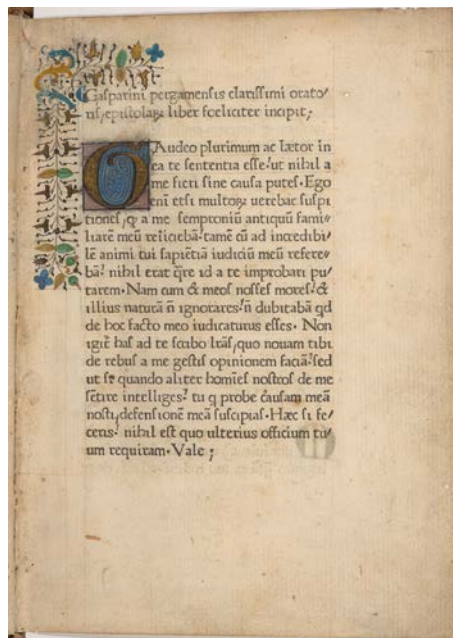 Gasparini pergamensis clarissimi orato/
ris, epistolaꝝ liber fœliciter incipit;
GAudeo plurimum ac lætor in
ea te sententia esse: ut nihil a
me fieri sine causa putes. Ego
eni etsi multoꝝ uerebar suspi
tiones, ꝙ a me semproniū antiquū fami/
liarē meū reiiciebā: tamē cū ad incredibi/
lē animi tui sapiētiā iudiciū meū refere/
bā: nihil erat q̄re id a te improbari pu/
tarem. Nam cum & meos nosses mores: &
illius naturā n̄ ignorares: n̄ dubitabā qd
de hoc facto meo iudicaturus esses. Non
igit̄ has ad te scribo lr̄as, quo nouam tibi
de rebus a me gestis opinionem faciā: sed
ut si quando aliter homīes nostros de me
sētire intelliges: tu q probe causam meā
nosti, defensionē meā suscipias. Hæc si fe/
ceris: nihil est quo ulterius officium tu/
um requiram. Vale;